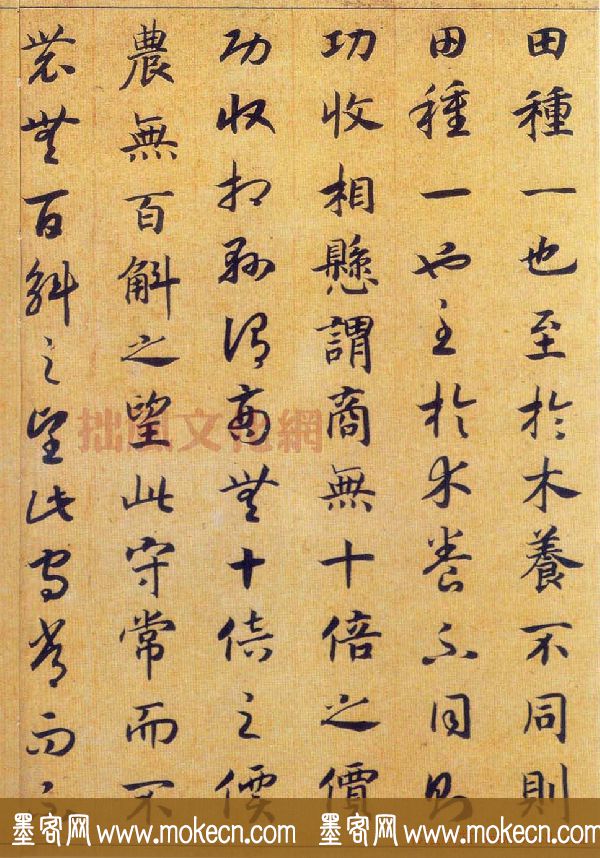 田種一也至於木養不同則
田種一也至於木養不同則
功收相懸謂商無十倍之價
功收相懸謂商無十倍之價
農無百斛之望此守常而不
農無百斛之望此守常而不
拙風文化網
墨客网 www.mokecn.com 墨客网 www.mokecn.com